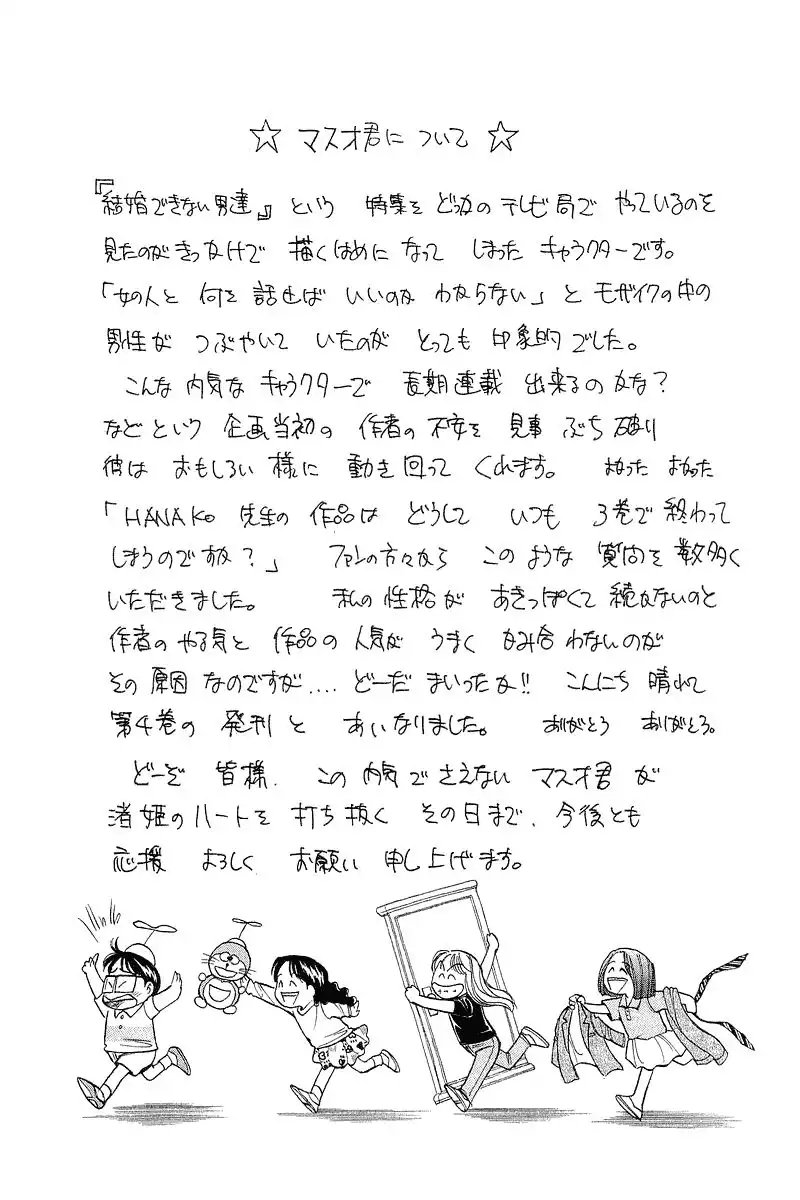 ☆ マスオ君について ☆
『結婚できない男達』という 特集を どっかの テレビ局で やっているのを
見たのがきっかけで 描くはめに なって しまった キャラクターです。
「女の人と 何を 話せば いいのか わからない」と モザイクの中の
男性が つぶやいて いたのが とっても 印象的でした。
こんな 内気な キャラクターで 長期連載 出来るのかな?
などという 企画当初の 作者の 不安を 見事 ぶち破り
彼は おもしろい様に 動き回って くれます。 よかった よかった
「HANAKO 先生の 作品は どうして いつも 3巻で 終わって
しまうのですか?」 ファンの方々から このような 質問を 数多く
いただきました。 私の 性格が あきっぽくて 続かないのと
作者の やる気と 作品の 人気が うまく かみ合わないのが
その 原因 なのですが.... どーだ まいったか!! こんにち 晴れて
第4巻の 発刊と あいなりました。 ありがとう ありがとう。
どーぞ 皆様、この 内気で さえない マスオ君が
渚姫のハートを 打ち抜く その日まで、今後とも
応援 よろしく お願い 申し上げます。